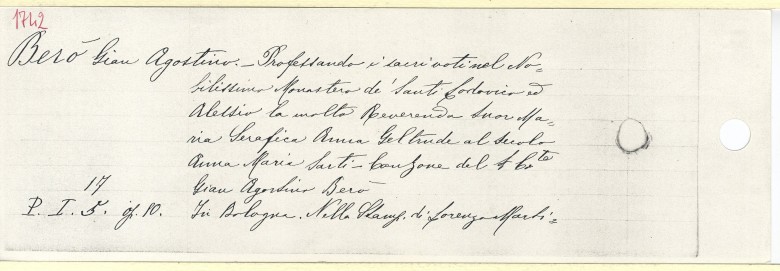 1742
Berò Gian Agostino. - Professando i sacri voti nel No=
bilissimo Monastero de' Santi Lodovico ed
Alessio la molto Reverenda Suor Ma=
ria Serafica Anna Geltrude al secolo
Anna Maria Sarti - Canzone del Co:te
Gian Agostino Berò
17
P. I. 5. 10. In Bologna. Nella Stamp. di Lorenzo Marti=